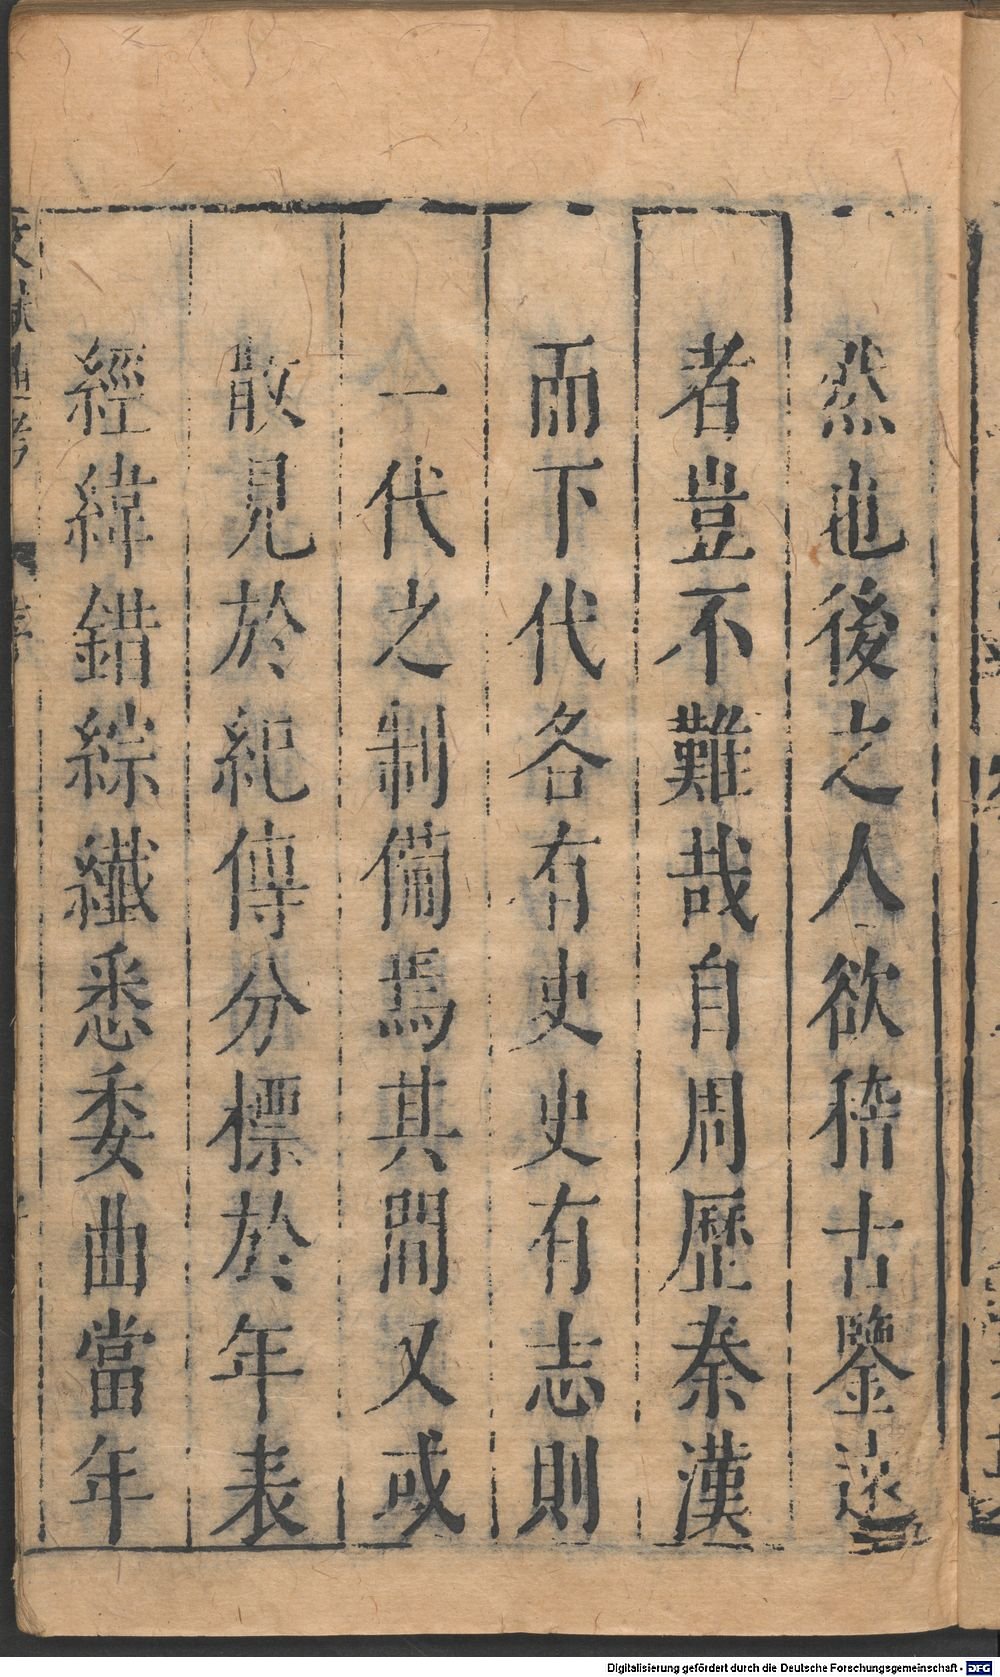 然也後之人欲稽古鑒遠
者豈不難哉自周歷秦漢
而下代各有史史有志則
一代之制備焉其間又或
散見於紀傳分標於年表
經緯錯綜纖悉委曲當年
文獻通考
序
Digitalisierung gefördert durch die Deutsche Forschungsgemeinschaft - DFG